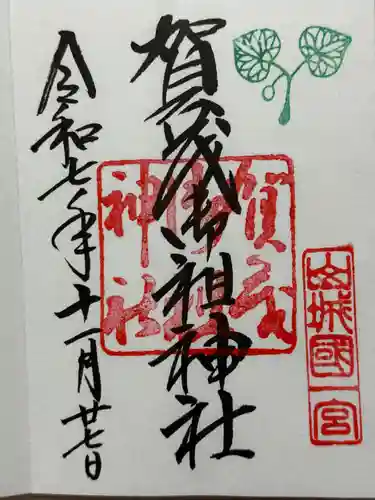 山城國一宮
賀茂御祖神社
賀茂御祖神社
令和七年十一月廿七日